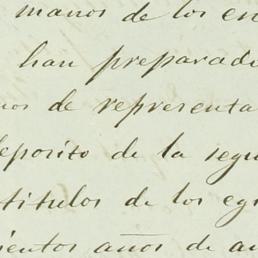 manos de los en
han preparad
os de representa
deposito de la segu
titulos de los eg
ientos años de an